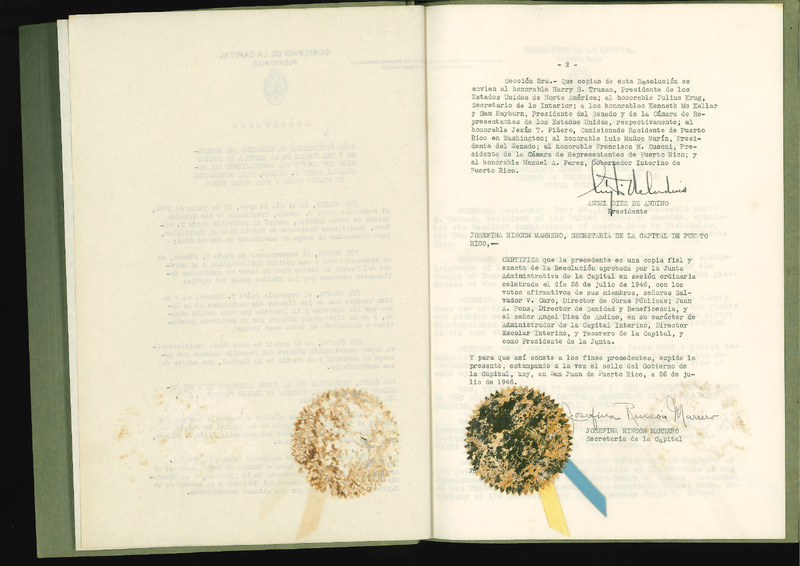 - 2 -
Sección 3ra.- Que copias de esta Resolución se
envien al honorable Harry S. Truman, Presidente de los
Estados Unidos de Norte América; al honorable Julius Krug,
Secretario de lo Interior; a los honorables Kenneth Mc Kellar
y Sam Rayburn, Presidente del Senado y de la Cámara de Re-
presentantes de los Estados Unidos, respectivamente; al
honorable Jesús T. Piñero, Comisionado Residente de Puerto
Rico en Washington; al honorable Luis Muñoz Marín, Presi-
dente del Senado; al honorable Francisco M. Susoni, Pre-
sidente de la Cámara de Representantes de Puerto Rico; y
al honorable Manuel A. Perez, Gobernador Interino de
Puerto Rico.
ANGEL DIEZ DE ANDINO
Presidente
JOSEFINA RINCON MARRERO, SECRETARIA DE LA CAPITAL DE PUERTO
RICO,—
CERTIFICA que la precedente es una copia fiel y
exacta de la Resolución aprobada por la Junta
Administrativa de la Capital en sesión ordinaria
celebrada el día 26 de julio de 1946, con los
votos afirmativos de sus miembros, señores Sal-
vador V. Caro, Director de Obras Públicas; Juan
A. Pons, Director de Sanidad y Beneficencia, y
el señor Angel Diez de Andino, en su carácter de
Administrador de la Capital Interino, Director
Escolar Interino, y Tesorero de la Capital, y
como Presidente de la Junta.
Y para que así conste a los fines procedentes, expido la
presente, estampando a la vez el sello del Gobierno de
la Capital, hoy, en San Juan de Puerto Rico, a 26 de ju-
lio de 1946.
Josefina Rincon Marrero
JOSEFINA RINCON MARRERO
Secretaria de la Capital